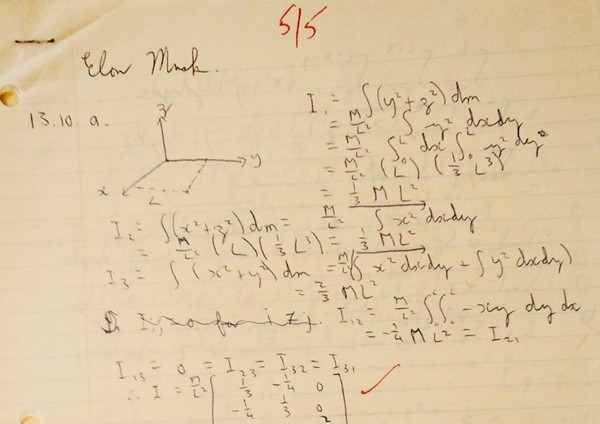 5/5
Elon Musk.
13.10. a.
z
y
x
L
I₁ = ∫(y²+z²) dm
= M/L² ∫ y² dxdy
= M/L² ∫₀ᴸ dx ∫₀ᴸ y² dy
= M/L² (L) (1/3 L³)
= 1/3 ML²
I₂ = ∫(x²+z²) dm = M/L² ∫ x² dxdy
= M/L² (L)(1/3 L³) = 1/3 ML²
I₃ = ∫ (x²+y²) dm = M/L² (∫ x² dxdy + ∫ y² dxdy)
= 2/3 ML²
I₁₂ = M/L² ∫∫ -xy dy dx
= -1/4 ML² = I₂₁
I₁₃ = 0 = I₂₃ = I₃₂ = I₃₁
1/3 -1/4 0
-1/4 1/3 0
2